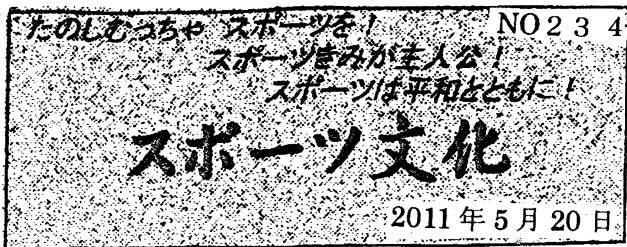 たのしむっちゃ スポーツを！
NO２３４
スポーツきみが主人公！
スポーツは平和とともに！
スポーツ文化
2011年5月20日